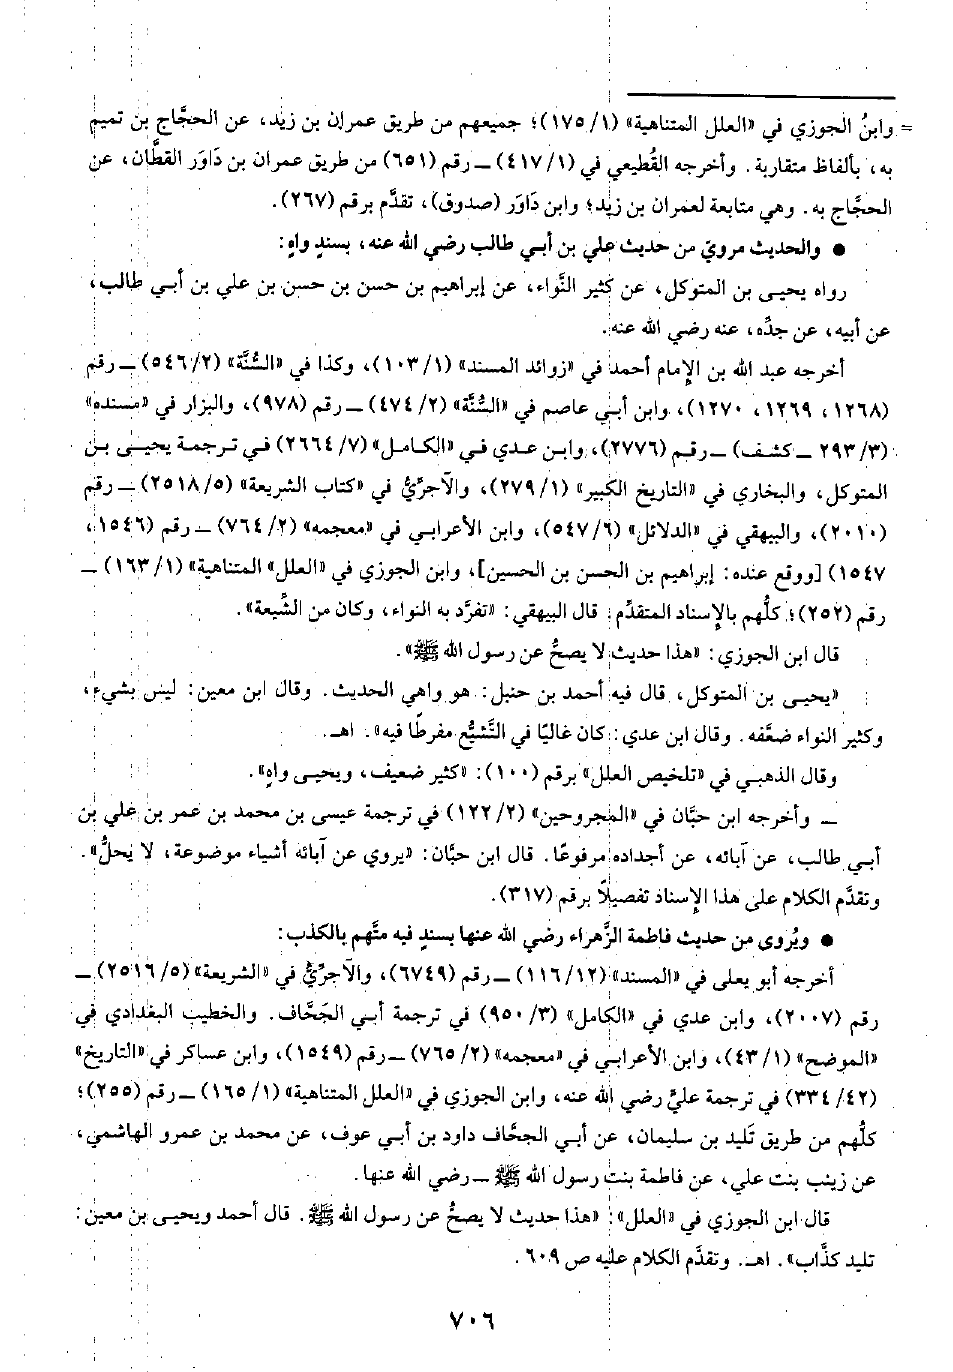 = وابنُ الجوزي في «العلل المتناهية» (١/ ١٧٥)؛ جميعهم من طريق عمران بن زيد، عن الحجَّاج بن تميم
به، بألفاظ متقاربة. وأخرجه القُطيعي في (١/ ٤١٧) ــ رقم (٦٥١) من طريق عمران بن دَاوَر القطَّان، عن
الحجَّاج به. وهي متابعة لعمران بن زيد؛ وابن دَاوَر (صدوق)، تقدَّم برقم (٢٦٧).
● والحديث مرويّ من حديث علي بن أبي طالب رضي الله عنه، بسندٍ واهٍ:
رواه يحيى بن المتوكل، عن كثير النَّواء، عن إبراهيم بن حسن بن حسن بن علي بن أبي طالب،
عن أبيه، عن جدِّه، عنه رضي الله عنه.
أخرجه عبد الله بن الإمام أحمد في «زوائد المسند» (١/ ١٠٣)، وكذا في «السُّنَّة» (٢/ ٥٤٦) ــ رقم
(١٢٦٨، ١٢٦٩، ١٢٧٠)، وابن أبي عاصم في «السُّنَّة» (٢/ ٤٧٤) ــ رقم (٩٧٨)، والبزار في «مسنده»
(٣/ ٢٩٣ ــ كشف) ــ رقم (٢٧٧٦)، وابن عدي في «الكامل» (٧/ ٢٦٦٤) في ترجمة يحيى بن
المتوكل، والبخاري في «التاريخ الكبير» (١/ ٢٧٩)، والآجرِّيُّ في «كتاب الشريعة» (٥/ ٢٥١٨) ــ رقم
(٢٠١٠)، والبيهقي في «الدلائل» (٦/ ٥٤٧)، وابن الأعرابي في «معجمه» (٢/ ٧٦٤) ــ رقم (١٥٤٦،
١٥٤٧) [ووقع عنده: إبراهيم بن الحسن بن الحسين]، وابن الجوزي في «العلل» المتناهية» (١/ ١٦٣) ــ
رقم (٢٥٢)؛ كلُّهم بالإسناد المتقدِّم. قال البيهقي: «تفرَّد به النواء، وكان من الشِّيعة».
قال ابن الجوزي: «هذا حديث لا يصحُّ عن رسول الله ﷺ».
«يحيى بن المتوكل، قال فيه أحمد بن حنبل: هو واهي الحديث. وقال ابن معين: ليس بشيء،
وكثير النواء ضعَّفه. وقال ابن عدي: كان غاليًا في التَّشيُّع مفرطًا فيه». اهـ.
وقال الذهبي في «تلخيص العلل» برقم (١٠٠): «كثير ضعيف، ويحيى واهٍ».
ــ وأخرجه ابن حبَّان في «المجروحين» (٢/ ١٢٢) في ترجمة عيسى بن محمد بن عمر بن علي بن
أبي طالب، عن آبائه، عن أجداده مرفوعًا. قال ابن حبَّان: «يروي عن آبائه أشياء موضوعة، لا يحلُّ».
وتقدَّم الكلام على هذا الإسناد تفصيلاً برقم (٣١٧).
● ويُروى من حديث فاطمة الزَّهراء رضي الله عنها بسندٍ فيه متَّهم بالكذب:
أخرجه أبو يعلى في «المسند» (١٢/ ١١٦) ــ رقم (٦٧٤٩)، والآجرِّيُّ في «الشريعة» (٥/ ٢٥١٦) ــ
رقم (٢٠٠٧)، وابن عدي في «الكامل» (٣/ ٩٥٠) في ترجمة أبي الجَحَّاف. والخطيب البغدادي في
«الموضح» (١/ ٤٣)، وابن الأعرابي في «معجمه» (٢/ ٧٦٥) ــ رقم (١٥٤٩)، وابن عساكر في «التاريخ»
(٤٢/ ٣٣٤) في ترجمة عليٍّ رضي الله عنه، وابن الجوزي في «العلل المتناهية» (١/ ١٦٥) ــ رقم (٢٥٥)؛
كلُّهم من طريق تَليد بن سليمان، عن أبي الجحَّاف داود بن أبي عوف، عن محمد بن عمرو الهاشمي،
عن زينب بنت علي، عن فاطمة بنت رسول الله ﷺ ــ رضي الله عنها.
قال ابن الجوزي في «العلل»: «هذا حديث لا يصحُّ عن رسول الله ﷺ. قال أحمد ويحيى بن معين:
تليد كذَّاب». اهـ. وتقدَّم الكلام عليه ص ٦٠٩.
٧٠٦